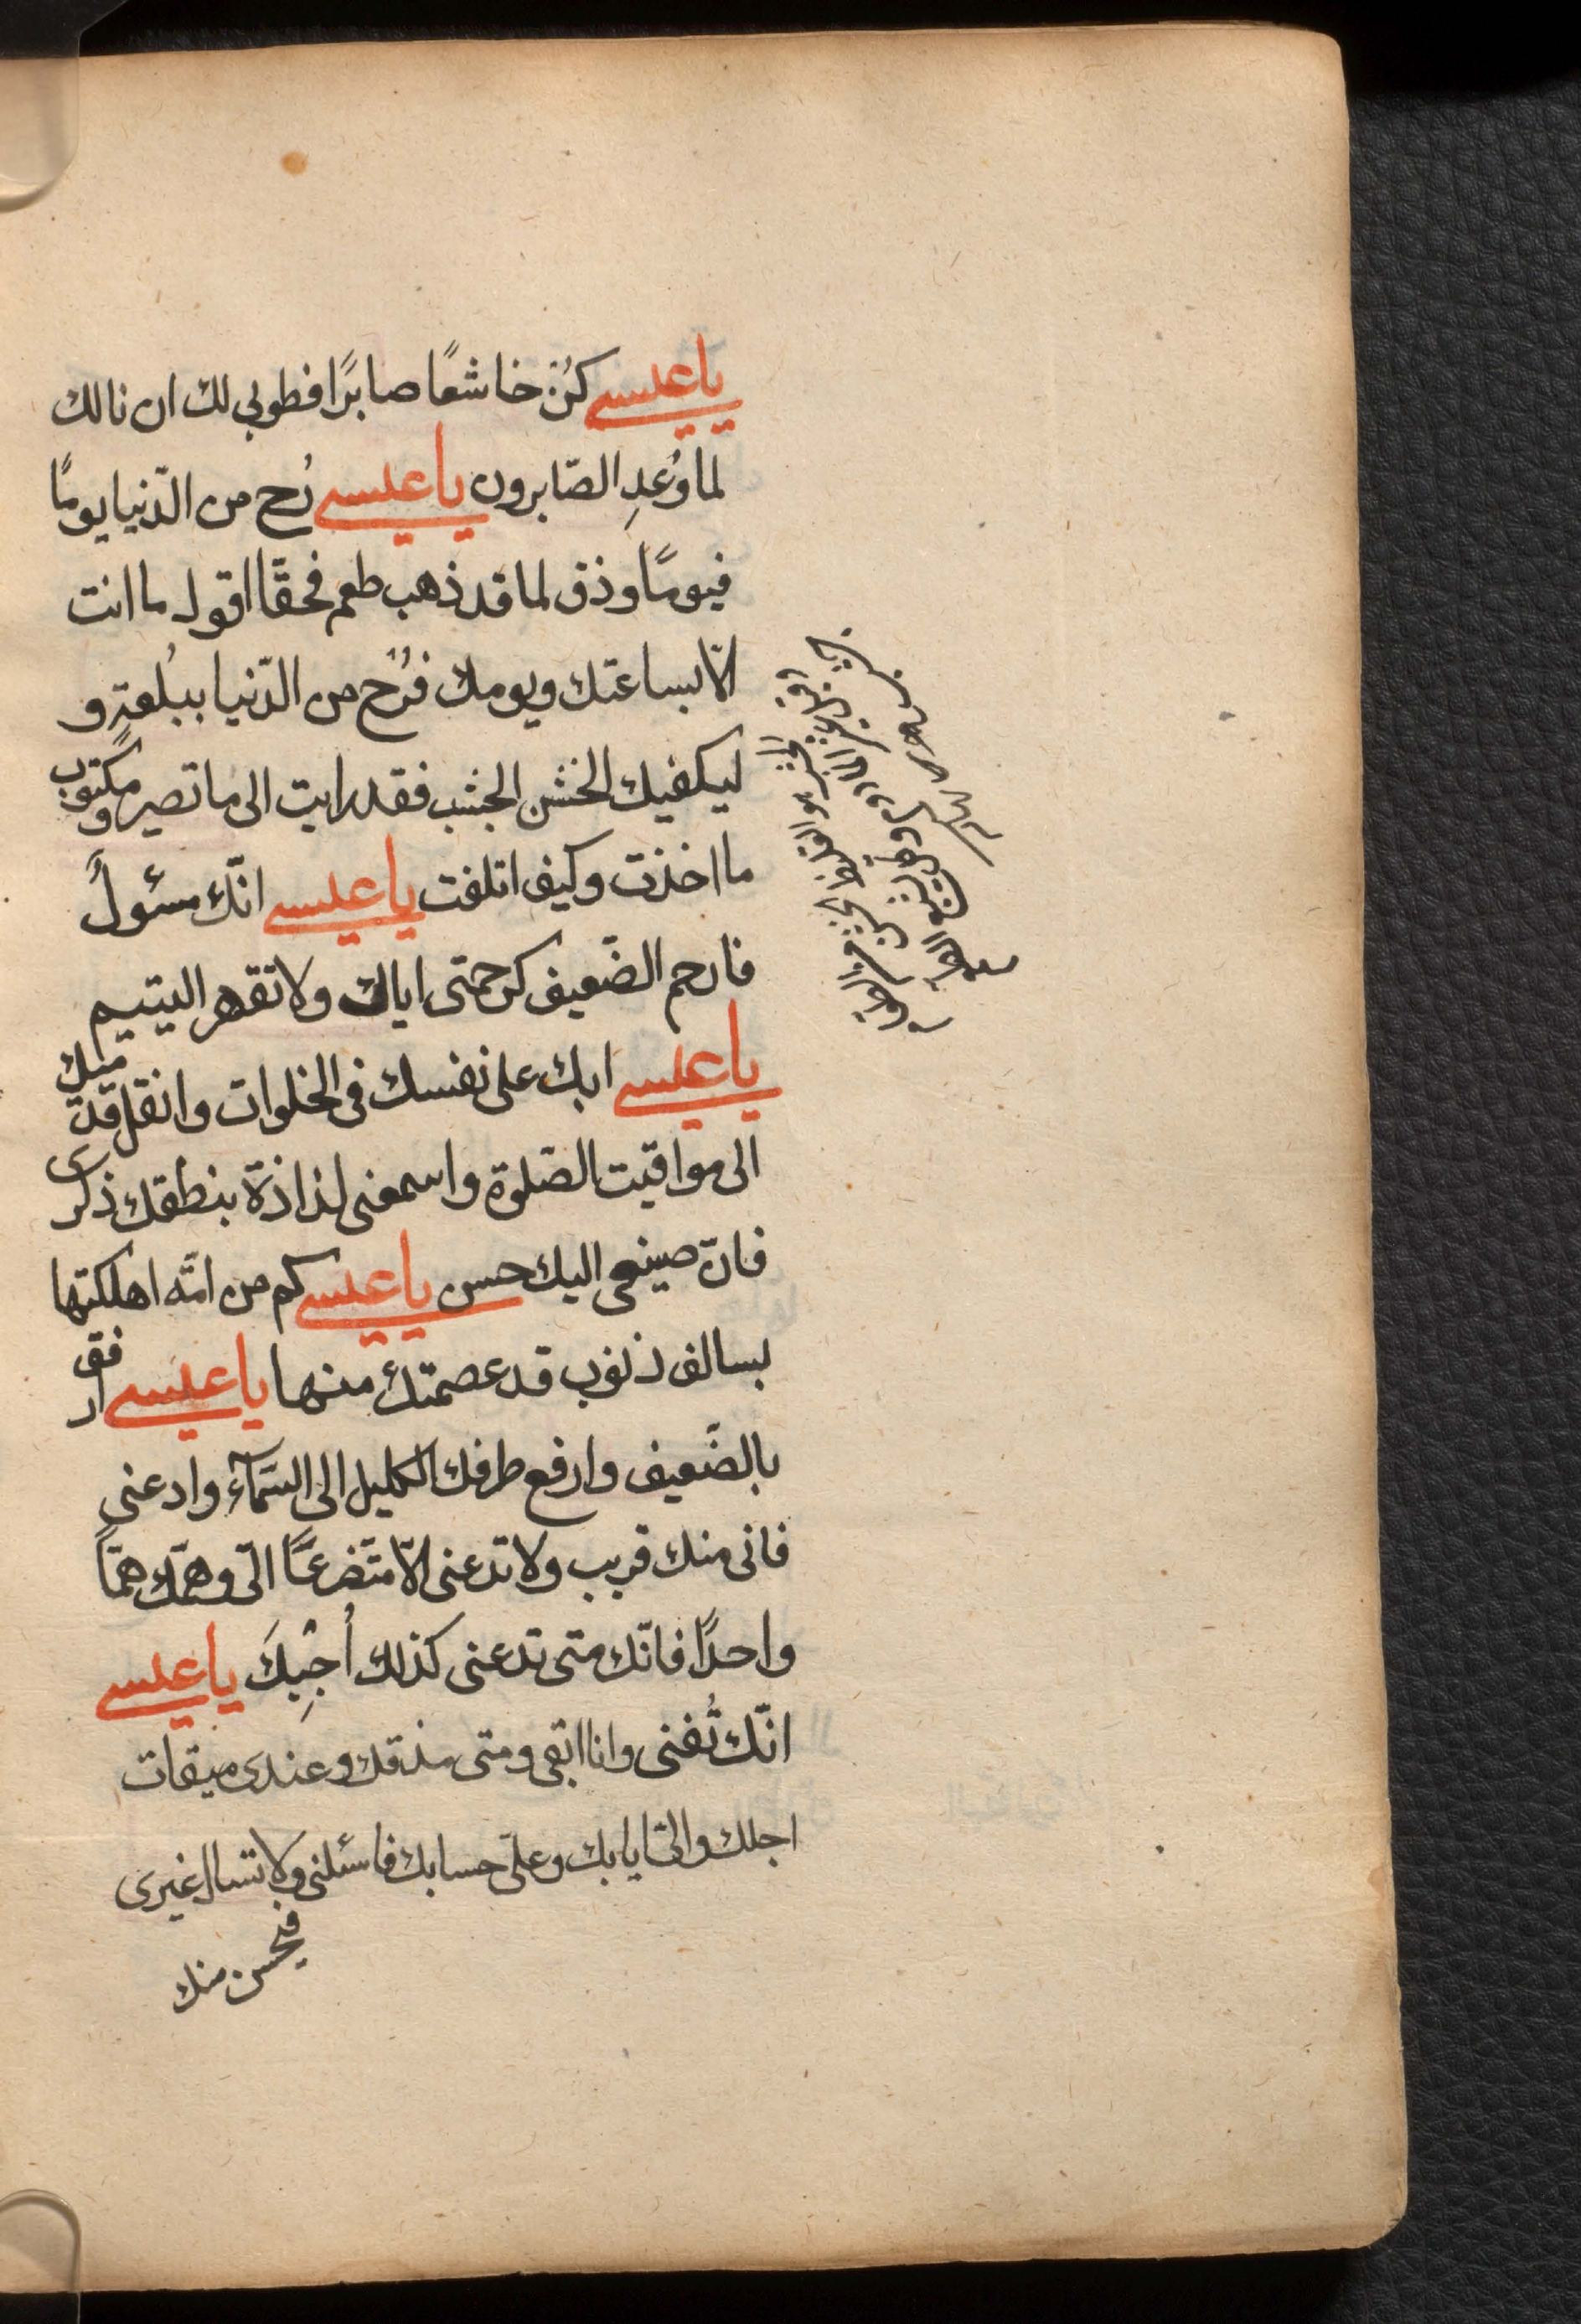 يا عيسى كُن خاشعًا صابرًا فطوبى لك ان نالك
لما وُعدِ الصّابرون يا عيسى رُح من الدّنيا يومًا
فيومًا وذق لما قد ذهب طعم فحقًّا اقول ما انت
الّا بساعتك ويومك فرُح من الدّنيا ببُلغةٍ و
ليكفيك الخشن الجشب فقد رايت الى ما تصير ومكتوبٌ
ما اخذت وكيف اتلفت يا عيسى انّك مسئولٌ
فارحم الضّعيف كرحمتى اياك ولا تقهر اليتيم
يا عيسى ابك على نفسك فى الخلوات وانقل قدميك
الى مواقيت الصّلوة واسمعنى لذاذة بنطقك ذكرى
فانّ صينعى اليك حسن يا عيسى كم من امّه اهلكتها
بسالف ذنوب قد عصمتك منها يا عيسى ارفق
بالضّعيف وارفع طرفك الكليل الى السّمآء وادعنى
فانى منك قريب ولا تدعنى الّا متضرعًّا الىّ وهمّك همّاً
واحدًا فانّك متى تدعنى كذلك أُجِبكَ يا عيسى
انّك تُفنى وانا ابقى ومتى منذقك وعندى ميقات
اجلك والىّ ايابك وعلىّ حسابك فاسئلنى ولا تسال غيرى
فيحسن منك